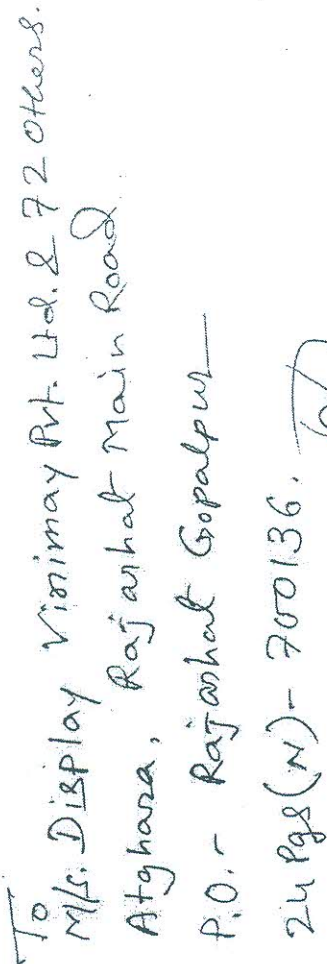 To
M/s. Display Vinimay Pvt. Ltd. & 72 others.
Atghara, Rajarhat Main Road
P.O.- Rajarhat Gopalpur
24 Pgs (N) - 700136.